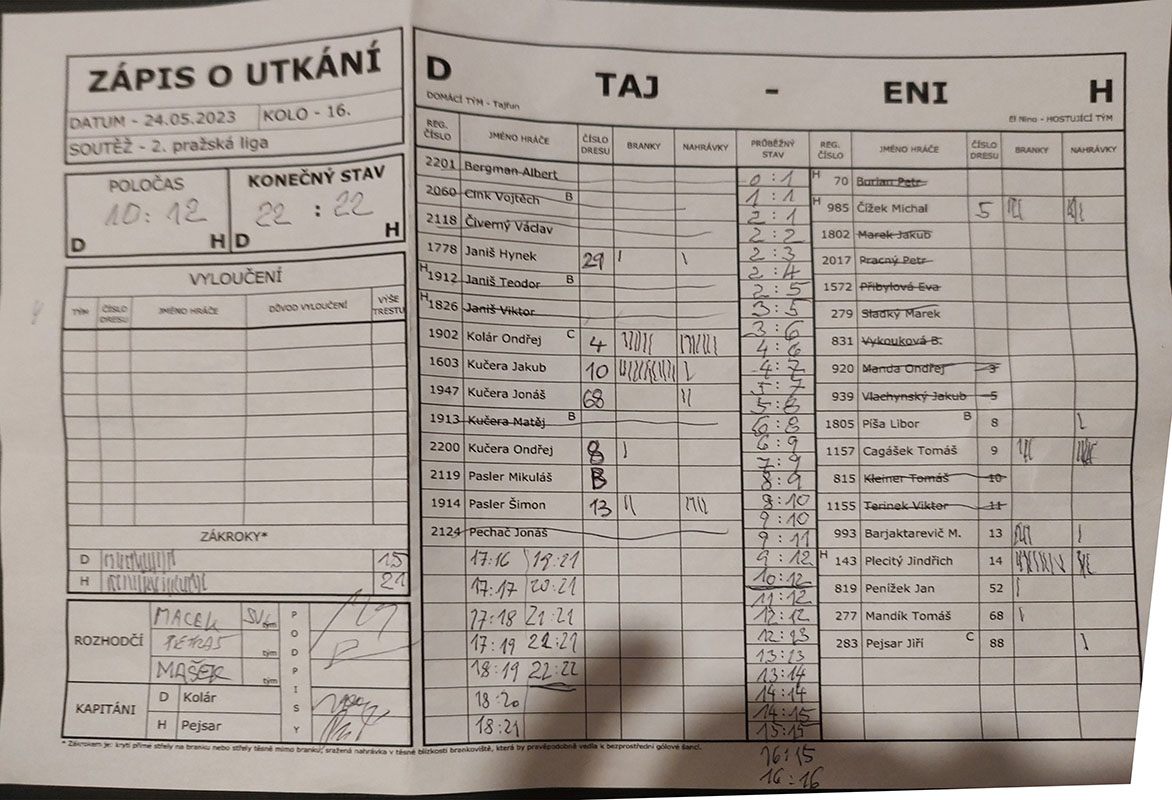 ZÁPIS O UTKÁNÍ
DATUM - 24.05.2023 KOLO - 16.
SOUTĚŽ - 2. pražská liga
POLOČAS KONEČNÝ STAV
10:12 22:22
D H D H
VYLOUČENÍ
TÝM ČÍSLO DRESU JMÉNO HRÁČE DŮVOD VYLOUČENÍ VÝŠE TRESTU
ZÁKROKY*
D 15
H 21
ROZHODČÍ
MACEK tým
PETRAS tým
MAŠEK tým
PODPISY
KAPITÁNI
D Kolár
H Pejsar
D TAJ - ENI H
DOMÁCÍ TÝM - Tajfun El Nino - HOSTUJÍCÍ TÝM
REG. ČÍSLO JMÉNO HRÁČE ČÍSLO DRESU BRANKY NAHRÁVKY PRŮBĚŽNÝ STAV REG. ČÍSLO JMÉNO HRÁČE ČÍSLO DRESU BRANKY NAHRÁVKY
2201 Bergman Albert
2060 Cink Vojtěch B
2118 Čiverný Václav
1778 Janiš Hynek 29
H 1912 Janiš Teodor B
H 1826 Janiš Viktor
1902 Kolár Ondřej C 4
1603 Kučera Jakub 10
1947 Kučera Jonáš 68
1913 Kučera Matěj B
2200 Kučera Ondřej 8
2119 Pasler Mikuláš
1914 Pasler Šimon 13
2124 Pechač Jonáš
17:16 19:21
17:17 20:21
17:18 21:21
17:19 22:21
18:19 22:22
18:20
18:21
0:1
1:1
2:1
2:2
2:3
2:4
2:5
3:5
3:6
4:6
4:7
5:7
5:8
6:8
6:9
7:9
8:9
8:10
9:10
9:11
9:12
10:12
11:12
12:12
12:13
13:13
13:14
14:14
14:15
15:15
16:15
16:16
H 70 Burian Petr
H 985 Čížek Michal 5
1802 Marek Jakub
2017 Pracný Petr
1572 Přibylová Eva
279 Sladký Marek
831 Vykouková B.
920 Manda Ondřej 3
939 Vlachynský Jakub 5
1805 Píša Libor B 8
1157 Cagášek Tomáš 9
815 Kleiner Tomáš 10
1155 Terinek Viktor 11
993 Barjaktarevič M. 13
H 143 Plecitý Jindřich 14
819 Penížek Jan 52
277 Mandík Tomáš 68
283 Pejsar Jiří C 88
* Zákrokem je: krytí přímé střely na branku nebo střely těsně mimo branku, sražená nahrávka v těsné blízkosti brankoviště, která by pravděpodobně vedla k bezprostřední gólové šanci.